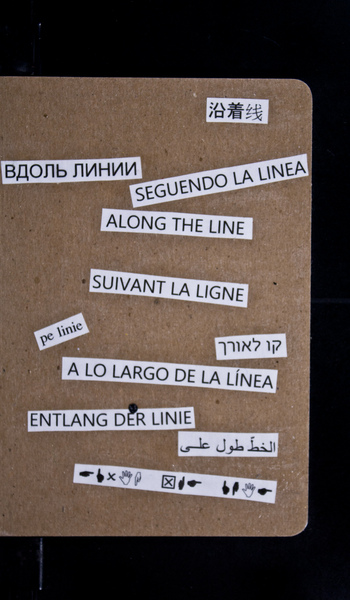 沿着线
ВДОЛЬ ЛИНИИ
SEGUENDO LA LINEA
ALONG THE LINE
SUIVANT LA LIGNE
pe linie
קו לאורך
A LO LARGO DE LA LÍNEA
ENTLANG DER LINIE
الخطّ طول علــى